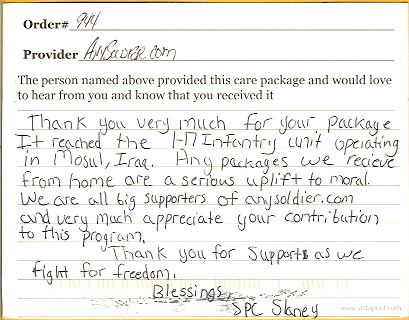 Order# 944
Provider AnySoldier.com
The person named above provided this care package and would love
to hear from you and know that you received it
Thank you very much for your package
It reached the 1-17 Infantry unit operating
in Mosul, Iraq. Any packages we recieve
from home are a serious uplift to moral.
We are all big supporters of anysoldier.com
and very much appreciate your contribution
to this program.
Thank you for supports as we
fight for freedom.
Blessings
SPC Slaney
www.vistaprint.com